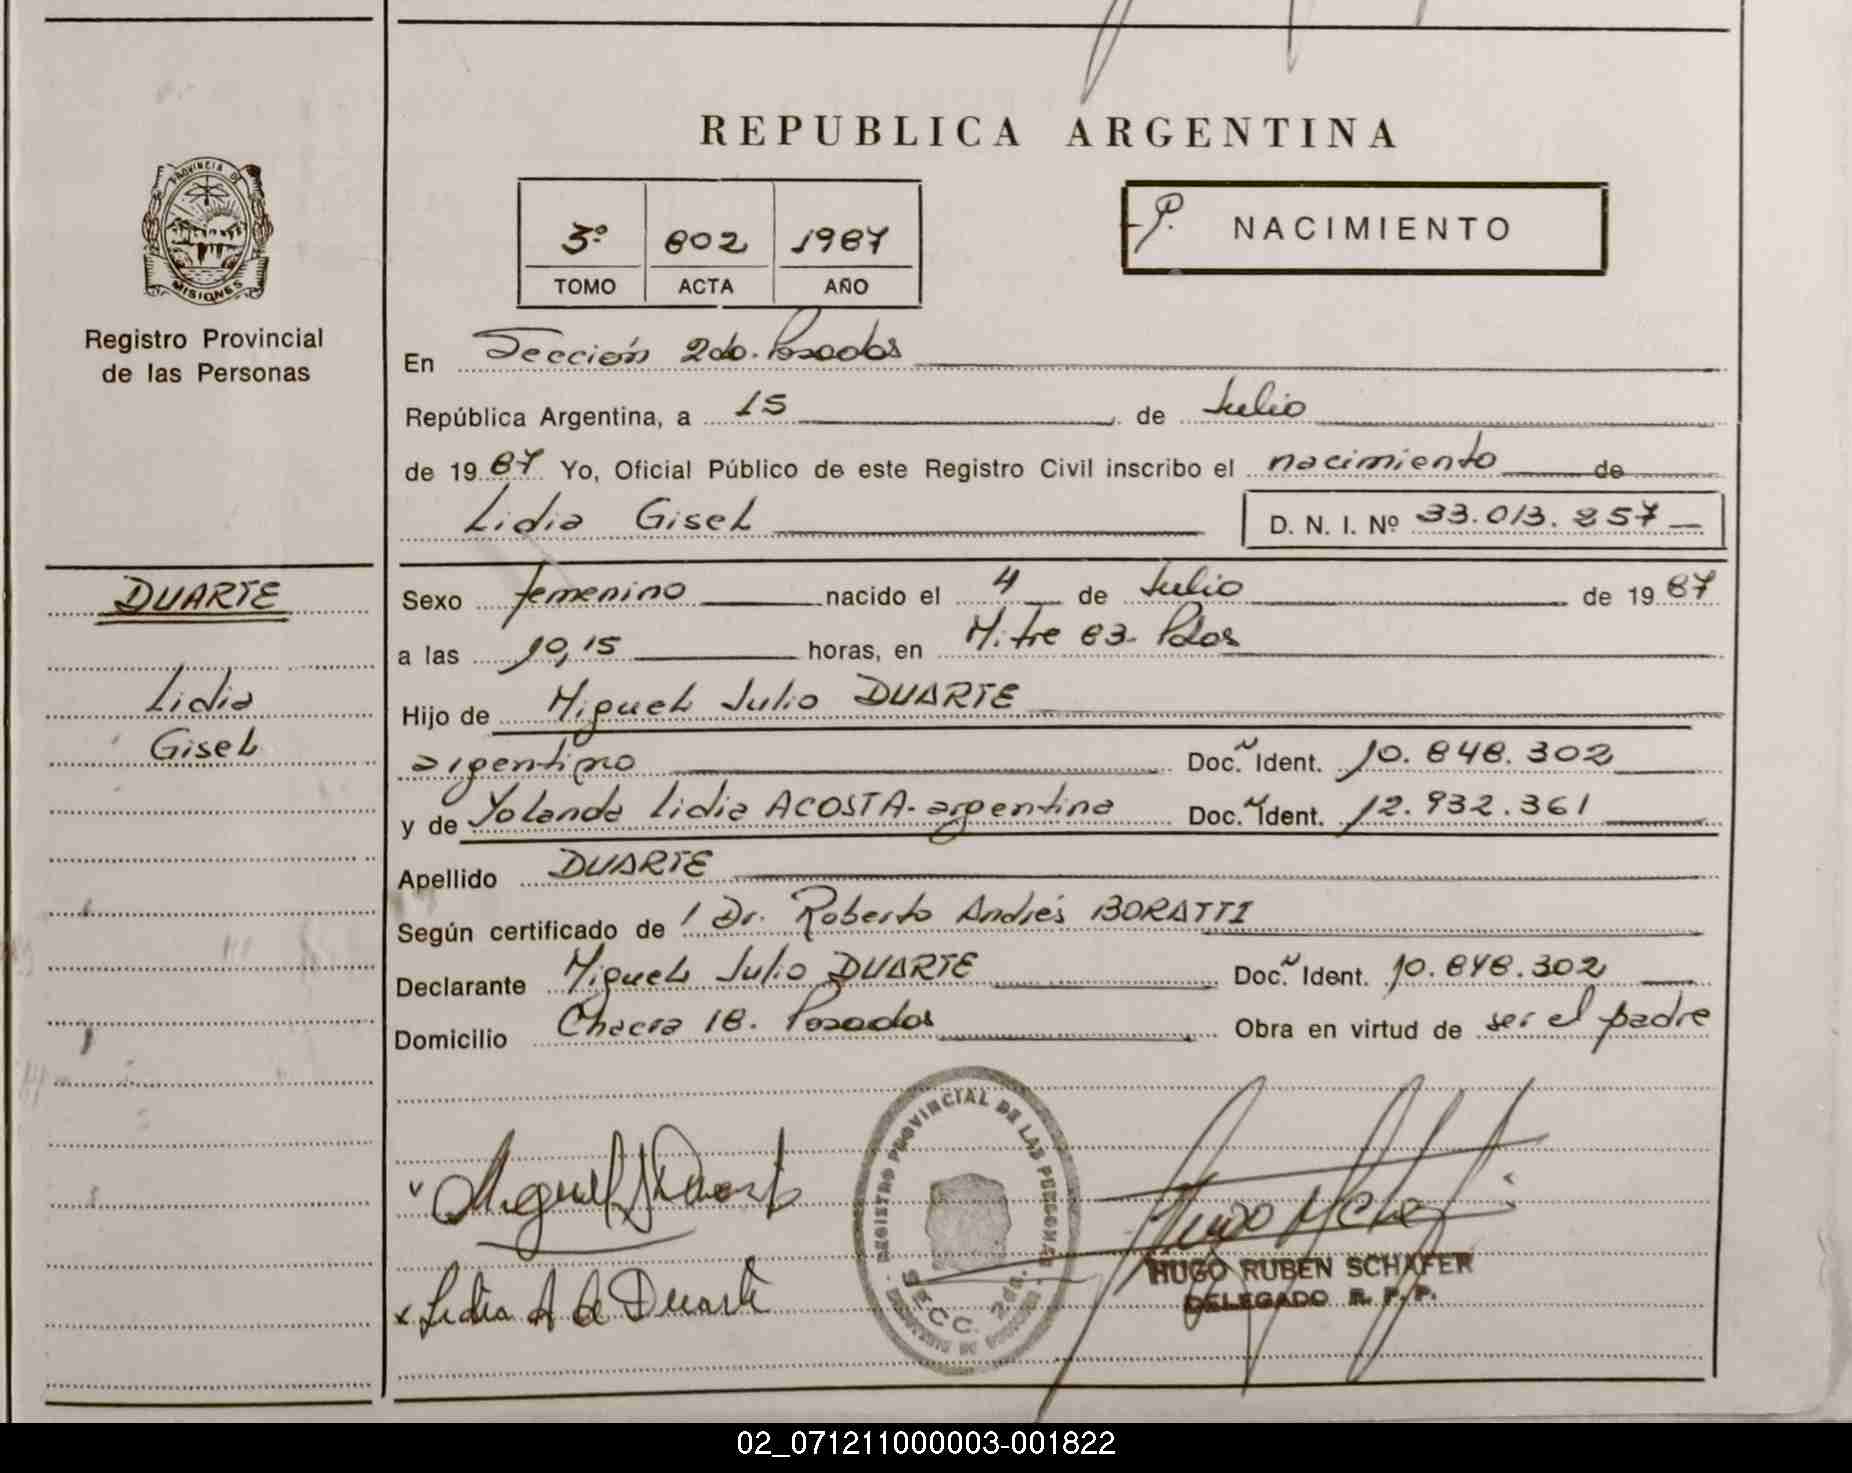 REPUBLICA ARGENTINA
PROVINCIA DE
MISIONES
Registro Provincial
de las Personas
3º 802 1987
TOMO ACTA AÑO
P. NACIMIENTO
En Sección 2da. Posadas
República Argentina, a 15 de Julio
de 1987 Yo, Oficial Público de este Registro Civil inscribo el nacimiento de
Lidia Gisel D. N. I. Nº 33.013.257
DUARTE
Lidia
Gisel
Sexo femenino nacido el 4 de Julio de 1987
a las 10,15 horas, en Mitre 83- Pdas
Hijo de Miguel Julio DUARTE
argentino Doc. Ident. 10.848.302
y de Yolanda Lidia ACOSTA-argentina Doc. Ident. 12.932.361
Apellido DUARTE
Según certificado de / Dr. Roberto Andrés BORATTI
Declarante Miguel Julio DUARTE Doc. Ident. 10.848.302
Domicilio Chacra 18. Posadas Obra en virtud de ser el padre
REGISTRO PROVINCIAL DE LAS PERSONAS
SECC. 2da.
Miguel J Duarte
x Lidia A de Duarte
HUGO RUBEN SCHAFER
DELEGADO R. P. P.
02_071211000003-001822